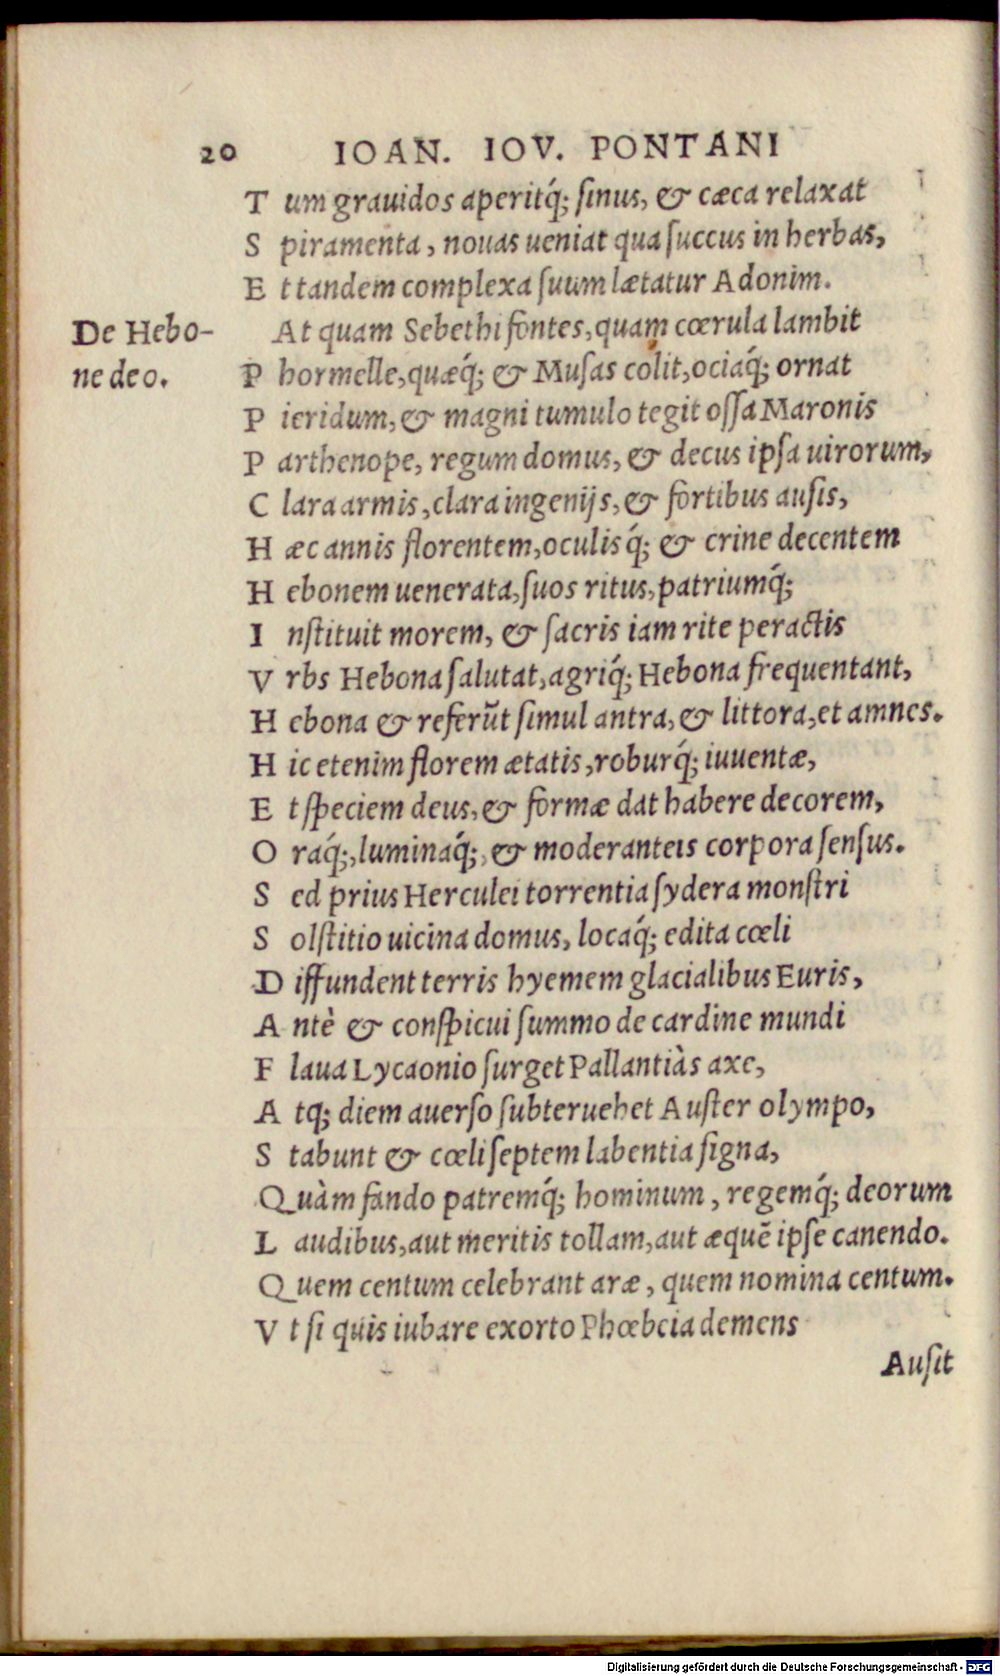 20 IOAN. IOV. PONTANI
Tum grauidos aperitq́; ſinus, & cæca relaxat
Spiramenta, nouas ueniat qua ſuccus in herbas,
Et tandem complexa ſuum lætatur Adonim.
De Hebo-
ne deo.
At quam Sebethi fontes, quam cœrula lambit
Phormelle, quæq́; & Muſas colit, ociaq́; ornat
Pieridum, & magni tumulo tegit oſſa Maronis
Parthenope, regum domus, & decus ipſa uirorum,
Clara armis, clara ingenijs, & fortibus auſis,
Hæc annis florentem, oculisq́; & crine decentem
Hebonem uenerata, ſuos ritus, patriumq́;
Inſtituit morem, & ſacris iam rite peractis
Vrbs Hebona ſalutat, agriq́; Hebona frequentant,
Hebona & referūt ſimul antra, & littora, et amnes.
Hic etenim florem ætatis, roburq́; iuuentæ,
Et ſpeciem deus, & formæ dat habere decorem,
Oraq́;, luminaq́;, & moderanteis corpora ſenſus.
Sed prius Herculei torrentia ſydera monſtri
Solſtitio uicina domus, locaq́; edita cœli
Diffundent terris hyemem glacialibus Euris,
Antè & conſpicui ſummo de cardine mundi
Flaua Lycaonio ſurget Pallantiàs axe,
Atq; diem auerſo ſubteruehet Auſter olympo,
Stabunt & cœli ſeptem labentia ſigna,
Quàm fando patremq́; hominum, regemq́; deorum
Laudibus, aut meritis tollam, aut æquē ipſe canendo.
Quem centum celebrant aræ, quem nomina centum.
Vt ſi quis iubare exorto Phœbeia demens
Auſit
Digitalisierung gefördert durch die Deutsche Forschungsgemeinschaft - DFG